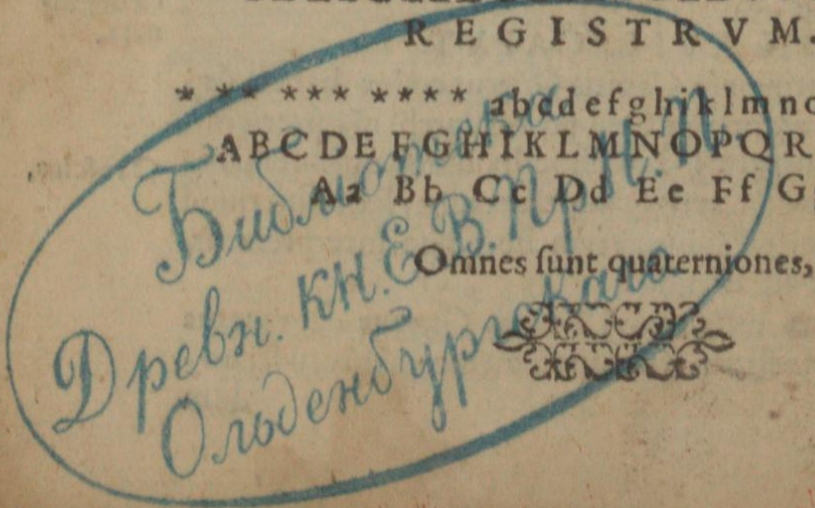 REGISTRVM.
* ** *** **** abcdefghiklmno
ABCDEFGHIKLMNOPQR
Aa Bb Cc Dd Ee Ff G
Omnes ſunt quaterniones,
Библиотека
Древн. кн. Е. В. Пр. П. П.
Ольденбургскаго